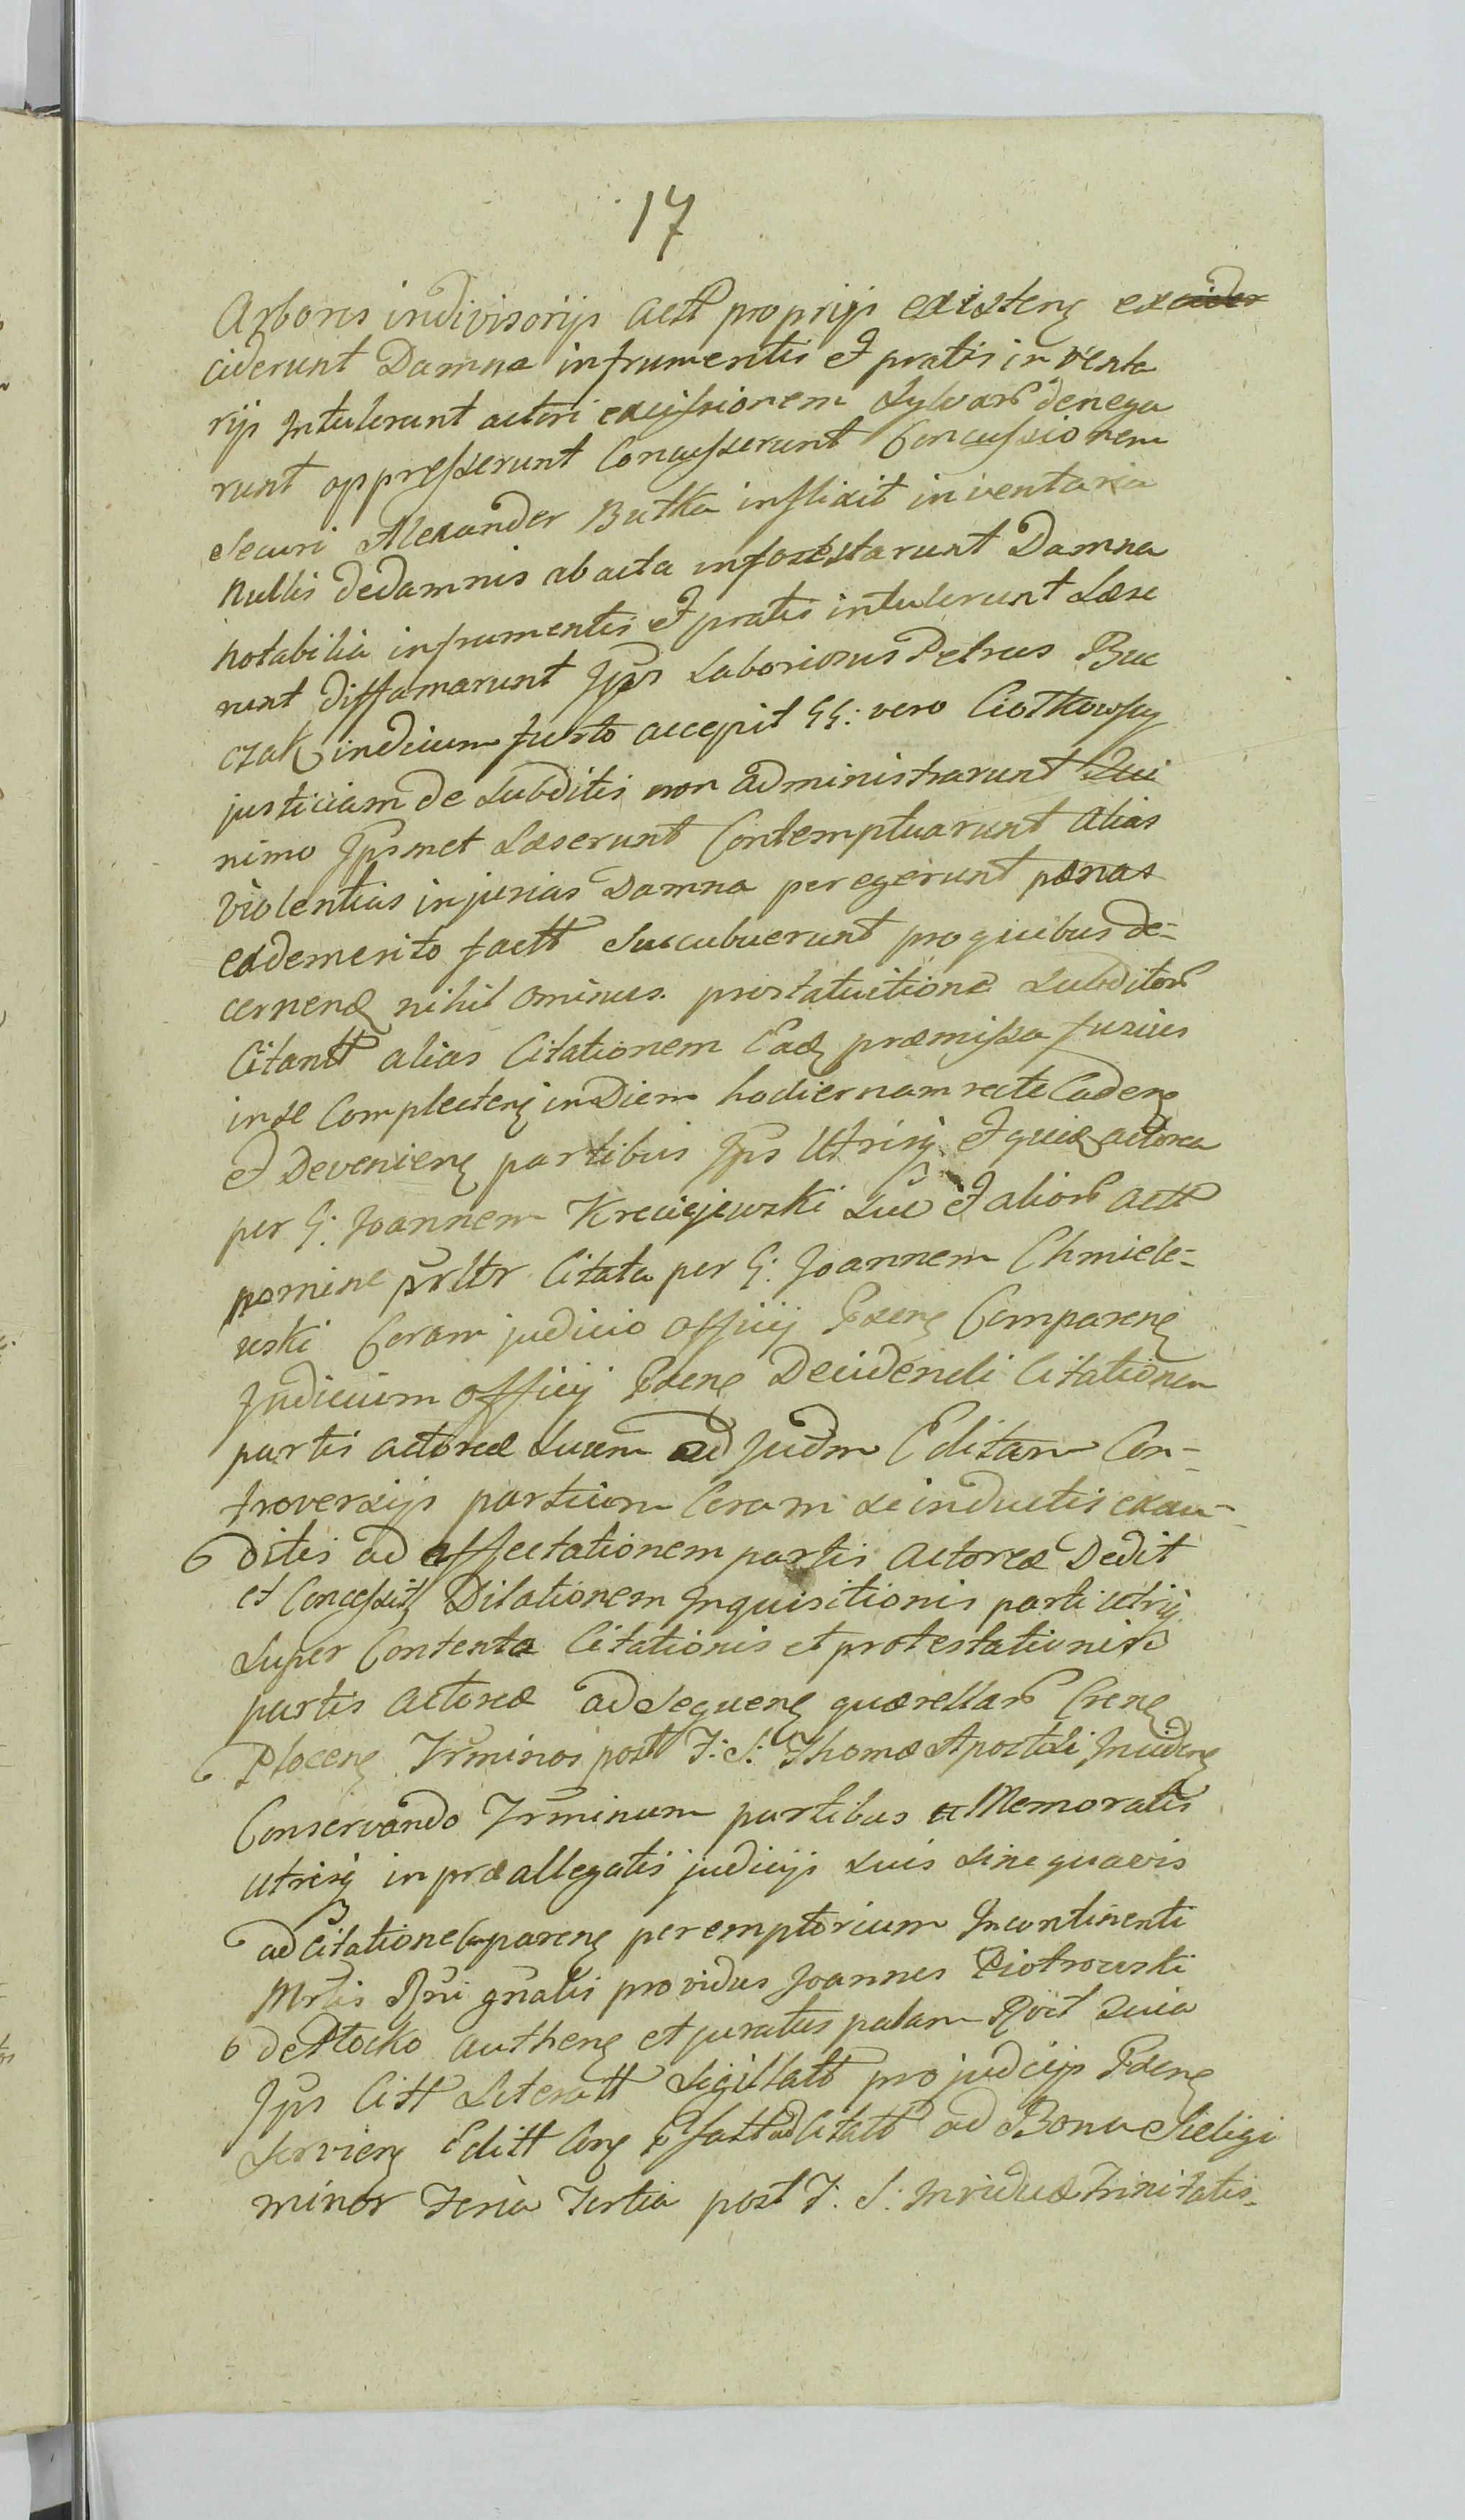 17
Arbores in divisorijs actt proprijs existen excider
ciderunt Damna in frumentis et pratis in venta
rijs Intulerunt actori excissionem Sylvarb denega
runt oppresserunt Concusserunt Concussionem
Securi Alexander Butka inflixit inventaria
nullis de damnis ab acta infortestarunt Damna
notabilia in frumentis et pratis intulerunt Læse
runt diffamarunt Jps Laboriosus Petrus Buc
czak indicium furto accepit GG: vero Ciotkowscy
justiciam de Subditis non administrarunt Qui
nimo Jpsmet Læserunt Contemptuarunt alias
violentias injurias Damna peregerunt pænas
ex demerito factt Succubuerunt pro quibus de-
cernend nihil ominus pro statuitione Subditorb
Citantt alias Citationem Ead præmissa fusius
in se Complecten in Diem hodiernam recte Caden
et Devenien partibus Jps Utrisq et quid actorea
per G: Joannem Kreciejewski Suo et aliorb actt
nomine pr Citata per G: Joannem Chmiele-
wski Coram judicio officij Comparen
Judicium officij Decidendi Citationem
partis actoreæ Suam ad Judm Editam Con-
troversijs partium Coram se inductis exau-
ditis ad affectationem partis Actoreæ Dedit
et Concessit Dilationem Inquisitionis parti utriq
Super Contenta Citationis et protestationis
partis actoreæ ad Sequen quærellarb
Plocen Trminos post F: S: Thomæ Apostoli Inciden
Conservando Trminum partibus Memoratis
utrisq in præallegatis judicijs Suis Sine quavis
ad Citatione Comparen peremptorium Incontinenti
Mrlis Rni gnalis providus Joannes Piotrowski
de Plocko authen et juratus palam Quia
Jps Citt Literatt Sigillatt pro judicijs
Servien Editt ad Citatt ad Bona Seligi
minor Feria Tertia post F: S: Trinitatis